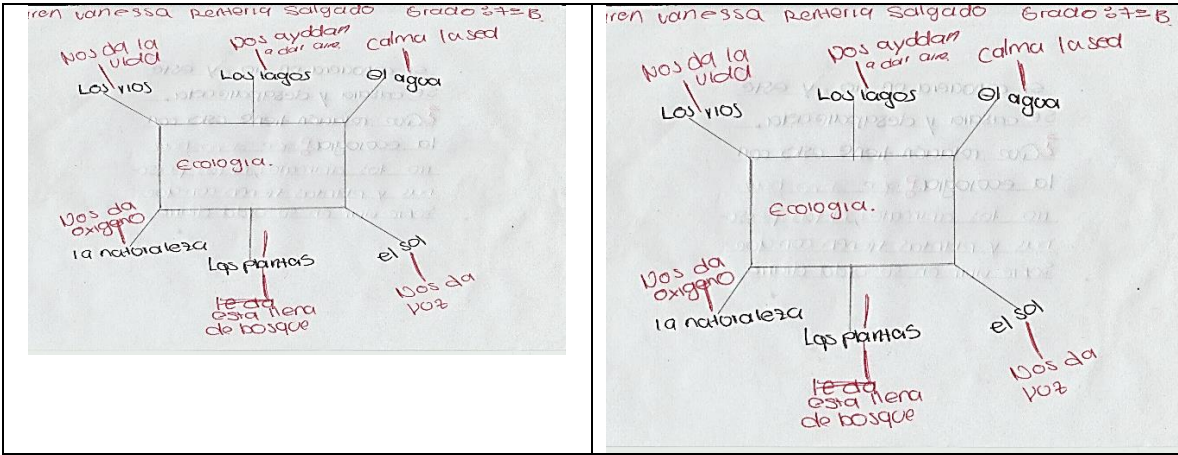 ren vanessa Renteria Salgado Grado:7=B
Nos da la vida
Nos ayddan a dar aire
Calma la sed
Los rios
Los lagos
El agua
Ecologia.
Nos da oxigeno
la naturaleza
Las plantas
el sol
le da
esta llena de bosque
Nos da
voz
ren vanessa Renteria Salgado Grado:7=B
Nos da la vida
Nos ayddan a dar aire
Calma la sed
Los rios
Los lagos
El agua
Ecologia.
Nos da oxigeno
la naturaleza
Las plantas
el sol
le da
esta llena de bosque
Nos da
voz